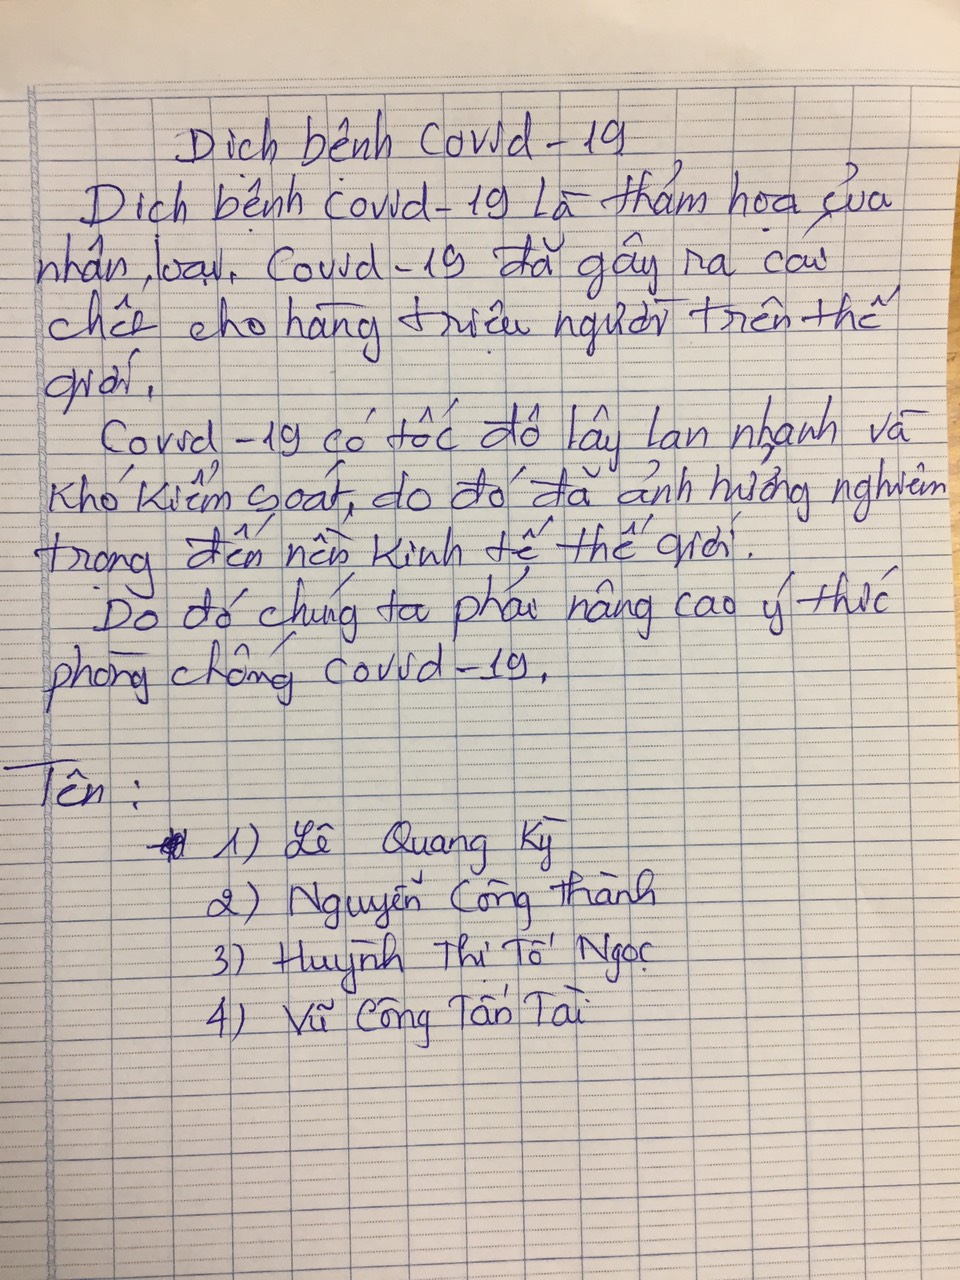 Dịch bệnh Covid-19
Dịch bệnh Covid-19 là thảm họa của
nhân loại. Covid-19 đã gây ra cái
chết cho hàng triệu người trên thế
giới.
Covid-19 có tốc độ lây lan nhanh và
khó kiểm soát, do đó đã ảnh hưởng nghiêm
trọng đến nền kinh tế thế giới.
Do đó chúng ta phải nâng cao ý thức
phòng chống Covid-19.
Tên :
1) Lê Quang Kỳ
2) Nguyễn Công Thành
3) Huỳnh Thị Tố Ngọc
4) Vũ Công Tấn Tài